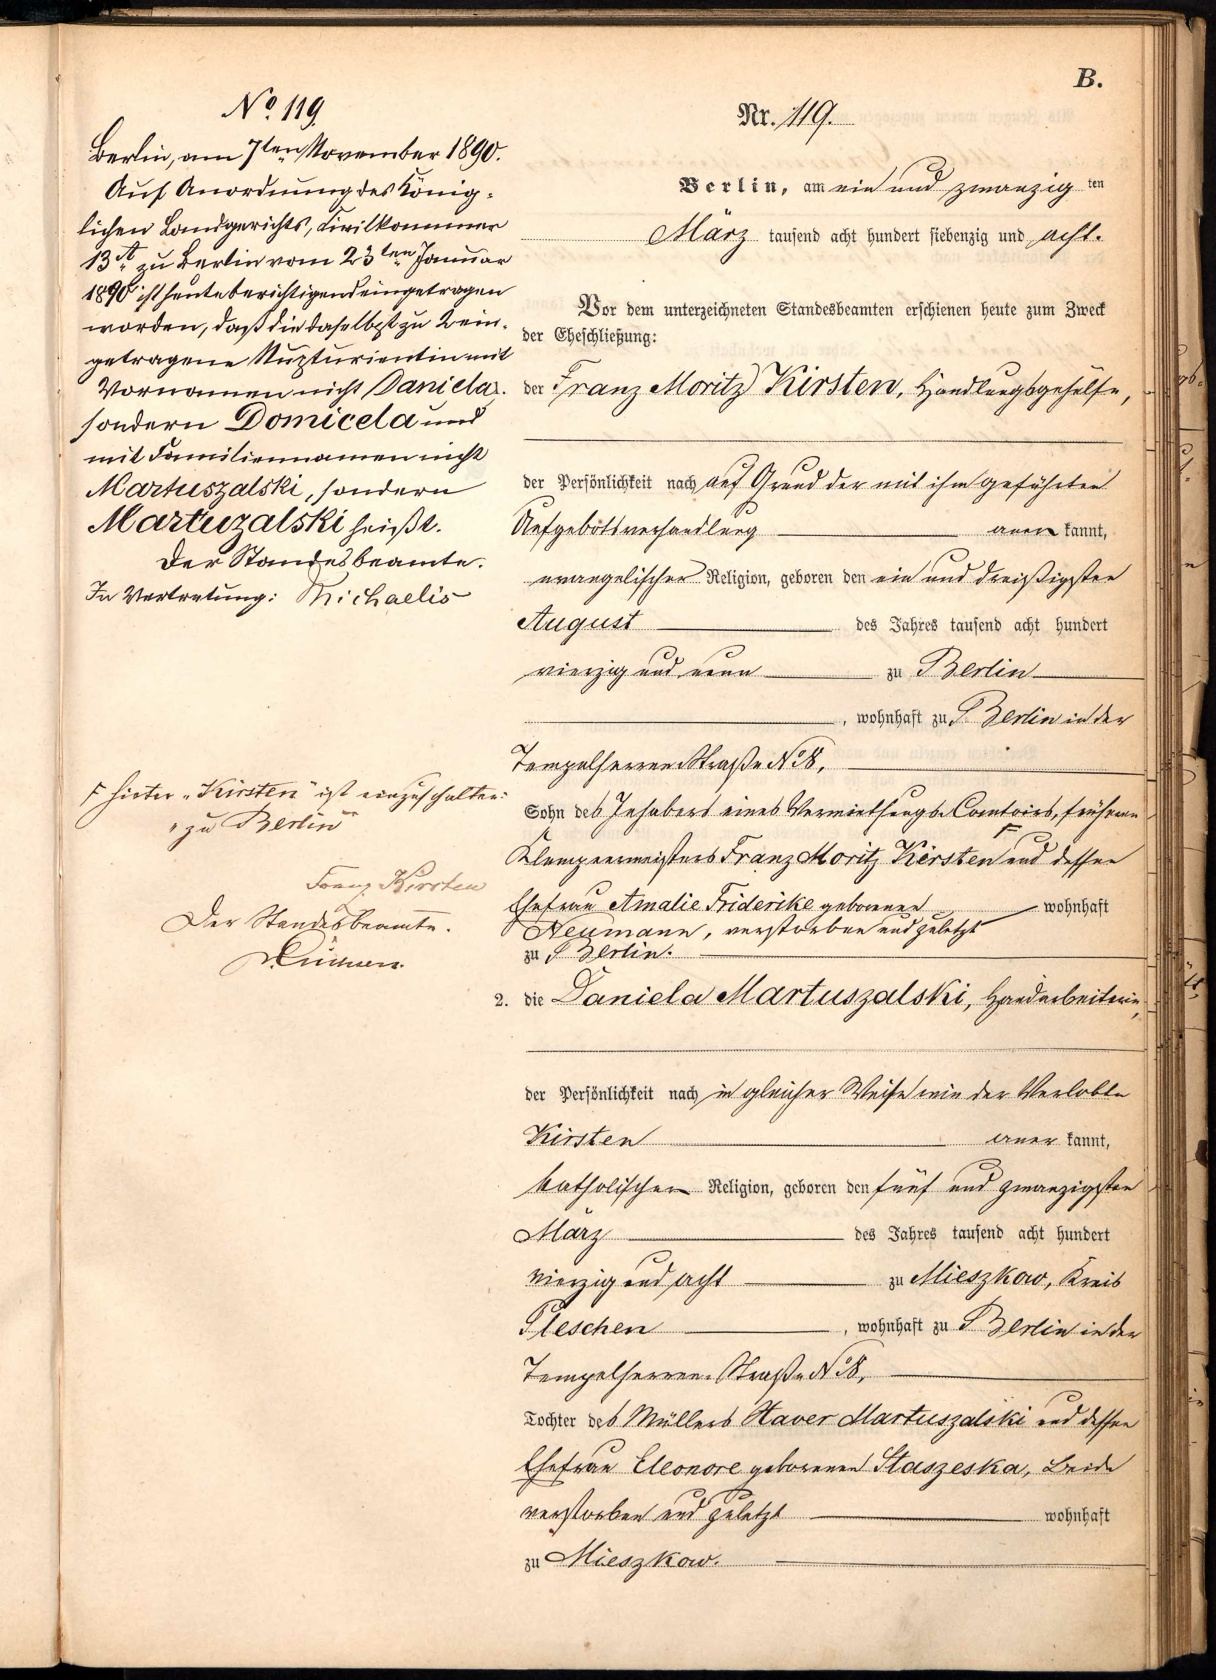 B.
No. 119.
Berlin, am 7ten November 1890.
Auf Anordnung des König-
lichen Landgerichts, Civilkammer
13A zu Berlin vom 23ten Januar
1890 ist heute berichtigend eingetragen
worden, daß die daselbst zu 2 ein-
getragene Nupturientin mit
Vornamen nicht Daniela,
sondern Domicela und
mit Familiennamen nicht
Martuszalski, sondern
Martuzalski heißt.
Der Standesbeamte.
In Vertretung: Michaelis
F hinter „Kirsten" ist einzuschalten:
„zu Berlin"
Franz Kirsten
Der Standesbeamte.
Nr. 119.
Berlin, am ein und zwanzig ten
März tausend acht hundert siebenzig und acht.
Vor dem unterzeichneten Standesbeamten erschienen heute zum Zweck
der Eheschließung:
der Franz Moritz Kirsten, Handlungsgehülfe,
der Persönlichkeit nach auf Grund der mit ihm geführten
Aufgebotsverhandlung aner kannt,
evangelischer Religion, geboren den ein und dreißigsten
August des Jahres tausend acht hundert
vierzig und neun zu Berlin
, wohnhaft zu Berlin in der
Tempelherren Straße No 8,
Sohn des Inhabers eines Vermiethungs-Comtoirs, früheren
Klempnermeisters Franz Moritz Kirsten F und dessen
Ehefrau Amalie Friderike geborenen wohnhaft
Neumann, verstorben und zuletzt
zu Berlin.
2. die Daniela Martuszalski, Handarbeiterin,
der Persönlichkeit nach in gleicher Weise wie der Verlobte
Kirsten aner kannt,
katholischer Religion, geboren den fünf und zwanzigsten
März des Jahres tausend acht hundert
vierzig und acht zu Mieszkow, Kreis
Pleschen , wohnhaft zu Berlin in der
Tempelherren-Straße No 8,
Tochter des Müllers Xaver Martuszalski und dessen
Ehefrau Eleonore geborenen Staszeska, Beide
verstorben und zuletzt wohnhaft
zu Mieszkow.